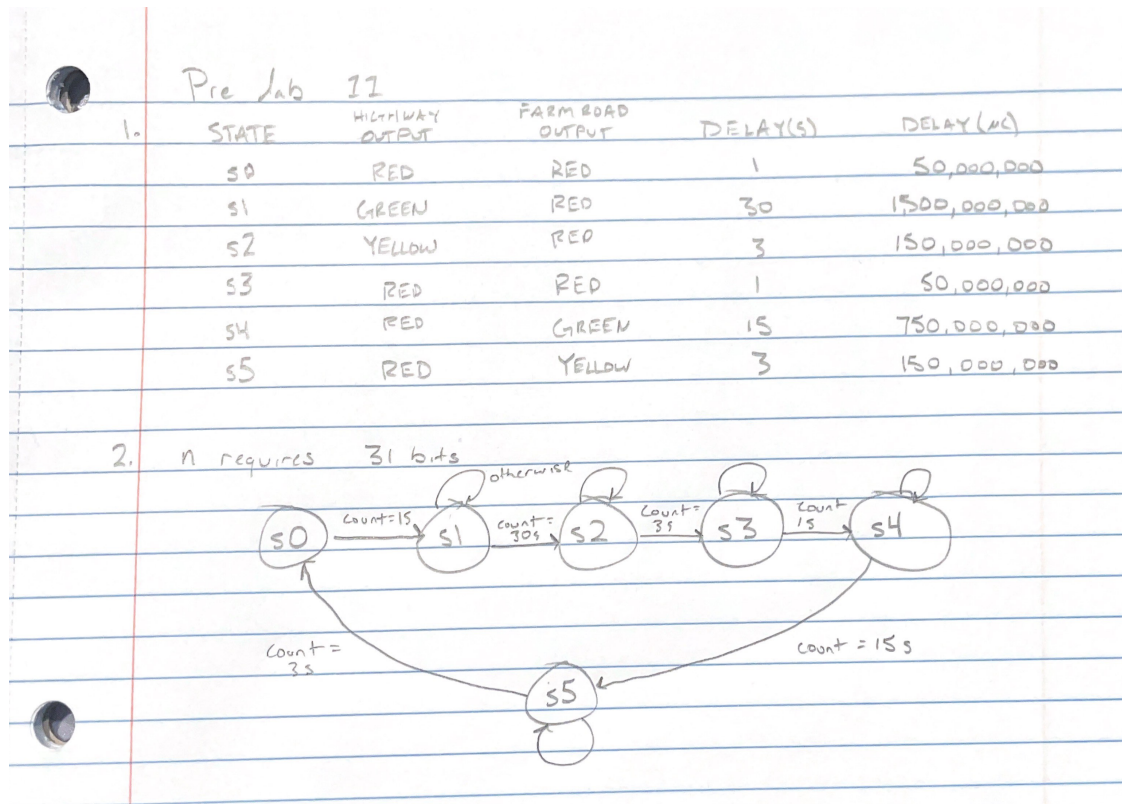 Pre Lab 11
1. STATE HIGHWAY OUTPUT FARM ROAD OUTPUT DELAY(S) DELAY(NC)
s0 RED RED 1 50,000,000
s1 GREEN RED 30 1,500,000,000
s2 YELLOW RED 3 150,000,000
s3 RED RED 1 50,000,000
s4 RED GREEN 15 750,000,000
s5 RED YELLOW 3 150,000,000
2. n requires 31 bits
otherwise
s0 count=1s s1 count=30s s2 count=3s s3 count 1s s4
count=3s
count = 15s
s5